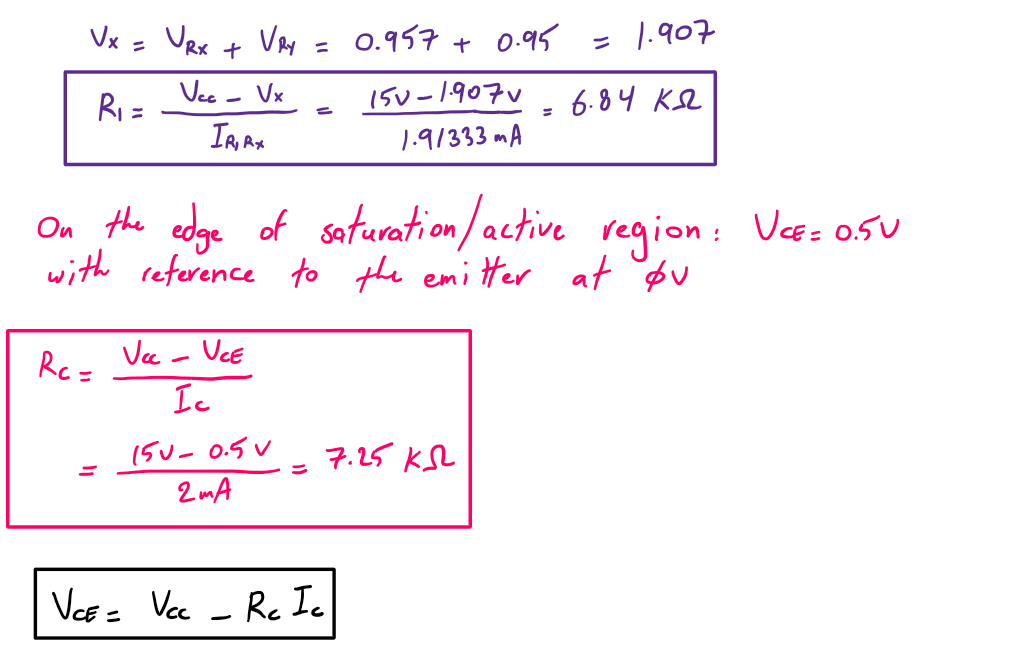 Vx = VRx + VRy = 0.957 + 0.95 = 1.907
R1 = (Vcc - Vx) / IR1Rx = (15V - 1.907V) / 1.91333 mA = 6.84 KΩ
On the edge of saturation/active region: VCE = 0.5V
with reference to the emitter at ϕV
Rc = (Vcc - VCE) / Ic
= (15V - 0.5V) / 2mA = 7.25 KΩ
VCE = Vcc - Rc Ic